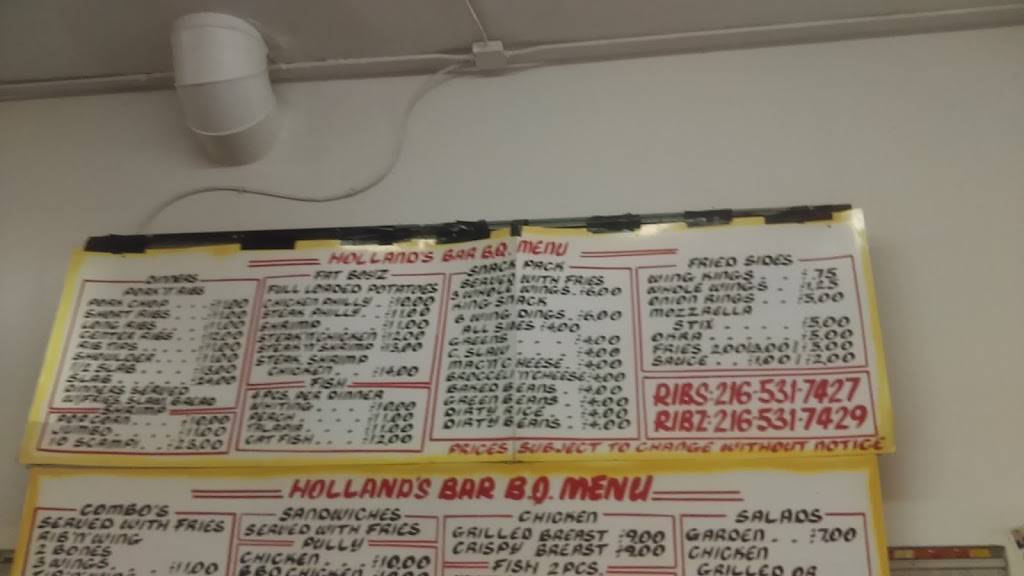 HOLLAND'S BAR B.Q. MENU
DINNERS
PORK N' RIBS
PORK CHOP
SHORT RIBS
LONG RIBS
CENTER RIBS
RIB TIPS
SHOULDER
1/2 SLAB
SLAB
DINNERS SERVED
W/FRIES SLAW BREAD
SHRIMP
JUMBO
FAT BOYZ
FULL LOADED POTATOES
CHICKEN PHILLY 10.00
STEAK PHILLY 11.00
SHRIMP 11.00
STEAK N' CHICKEN 12.00
STEAK SHRIMP
CHICKEN 14.00
FISH
4 PCS. PER DINNER
WHITING 10.00
PERCH
TILAPIA 11.00
CAT FISH 12.00
SNACK PACK
SERVED WITH FRIES
3 WHOLE WINGS 6.00
KING SNACK
6 WING DINGS 6.00
ALL SIDES 4.00
GREENS 4.00
C. SLAW 4.00
MAC N' CHEESE 4.00
BROCCOLI N' CHEESE 4.00
BAKED BEANS 4.00
GREEN BEANS 4.00
DIRTY RICE 4.00
FRIED SIDES
WING KINGS .75
WHOLE WINGS 1.25
ONION RINGS 5.00
MOZZARELLA
STIX 5.00
OKRA 5.00
FRIES 2.00
SAUCE 1.00 / 2.00
RIBS: 216-531-7427
RIBZ: 216-531-7429
PRICES SUBJECT TO CHANGE WITHOUT NOTICE
HOLLAND'S BAR B.Q. MENU
COMBO'S
SERVED WITH FRIES
RIB 'N' WING
2 BONES
3 WINGS 11.00
SANDWICHES
SERVED WITH FRIES
PULLY
CHICKEN 10.00
BBQ CHICKEN
CHICKEN
GRILLED BREAST 9.00
CRISPY BREAST 9.00
FISH 2 PCS.
SALADS
GARDEN 7.00
CHICKEN
GRILLED OR